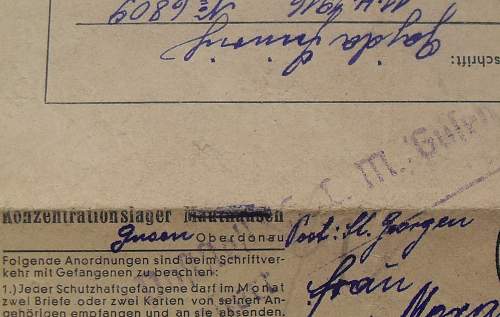 11.4. 1916 № 6809
Gajda
schrift:
Konzentrationslager Mauthausen
Gusen Oberdonau Post: St. Georgen
Folgende Anordnungen sind beim Schriftver-
kehr mit Gefangenen zu beachten:
1.) Jeder Schutzhaftgefangene darf im Monat
zwei Briefe oder zwei Karten von seinen An-
gehörigen empfangen und an sie absenden.
Frau